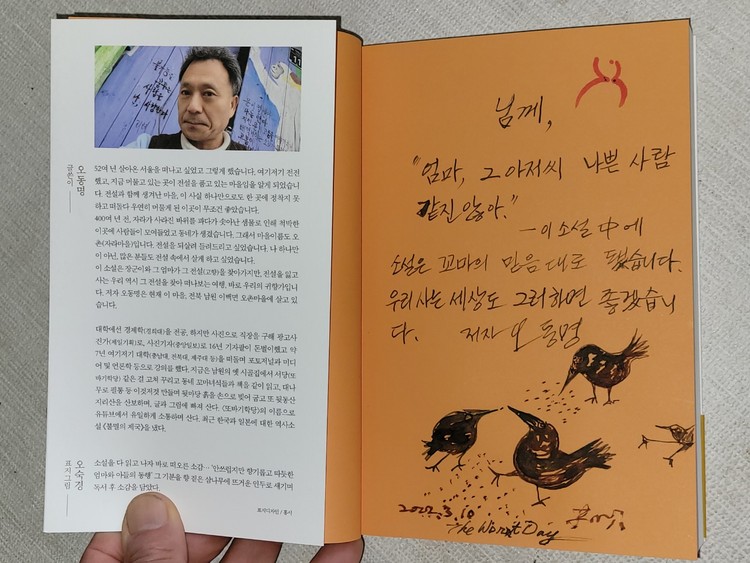 오동명
글쓴이
52여 년 살아온 서울을 떠나고 싶었고 그렇게 했습니다. 여기저기 전전
했고, 지금 머물고 있는 곳이 전설을 품고 있는 마을임을 알게 되었습니
다. 전설과 함께 생겨난 마을, 이 사실 하나만으로도 한 곳에 정착지 못
하고 떠돌다 우연히 머물게 된 이곳이 무조건 좋았습니다.
400여 년 전, 자라가 사라진 바위를 파다가 솟아난 샘물로 인해 척박한
이곳에 사람들이 모여들었고 동네가 생겼습니다. 그래서 마을이름도 오
촌(자라마을)입니다. 전설을 되살려 들려드리고 싶었습니다. 나 하나만
이 아닌, 많은 분들도 전설 속에서 살게 하고 싶었습니다.
이 소설은 장군이와 그 엄마가 그 전설(고향)을 찾아가지만, 전설을 잃고
사는 우리 역시 그 전설을 찾아 떠나보는 여행, 바로 우리의 귀향기입니
다. 저자 오동명은 현재 이 마을, 전북 남원 이백면 오촌마을에 살고 있
습니다.
대학에선 경제학(경희대)을 전공, 하지만 사진으로 직장을 구해 광고사
진가(제일기획)로, 사진기자(중앙일보)로 16년 기자밥이 돈벌이했고 약
7년 여기저기 대학(충남대, 전북대, 제주대 등)을 떠돌며 포토저널과 미디
어 및 언론학 등으로 강의를 했다. 지금은 남원의 옛 시골집에서 서당(또
바기학당) 같은 걸 고쳐 꾸리고 동네 꼬마녀석들과 책을 같이 읽고, 대나
무로 필통 등 이것저것 만들며 뒷마당 흙을 손으로 빚어 굽고 또 뒷동산
지리산을 산보하며, 글과 그림에 빠져 산다. <또바기학당>의 이름으로
유튜브에서 유일하게 소통하며 산다. 최근 한국과 일본에 대한 역사소
설 《불멸의 제국》을 냈다.
오숙경
표지그림
소설을 다 읽고 나자 바로 떠오른 소감… '안쓰럽지만 향기롭고 따듯한
엄마와 아들의 동행' 그 기분을 향 짙은 삼나무에 뜨거운 인두로 새기며
독서 후 소감을 담았다.
표지디자인 / 홍시
님께,
"엄마, 그 아저씨 나쁜 사람
같진 않아."
— 이 소설 中에
소설은 꼬마의 믿음대로 됐습니다.
우리 사는 세상도 그러하면 좋겠습니
다. 저자 오동명
2022.3.10
The Worst Day